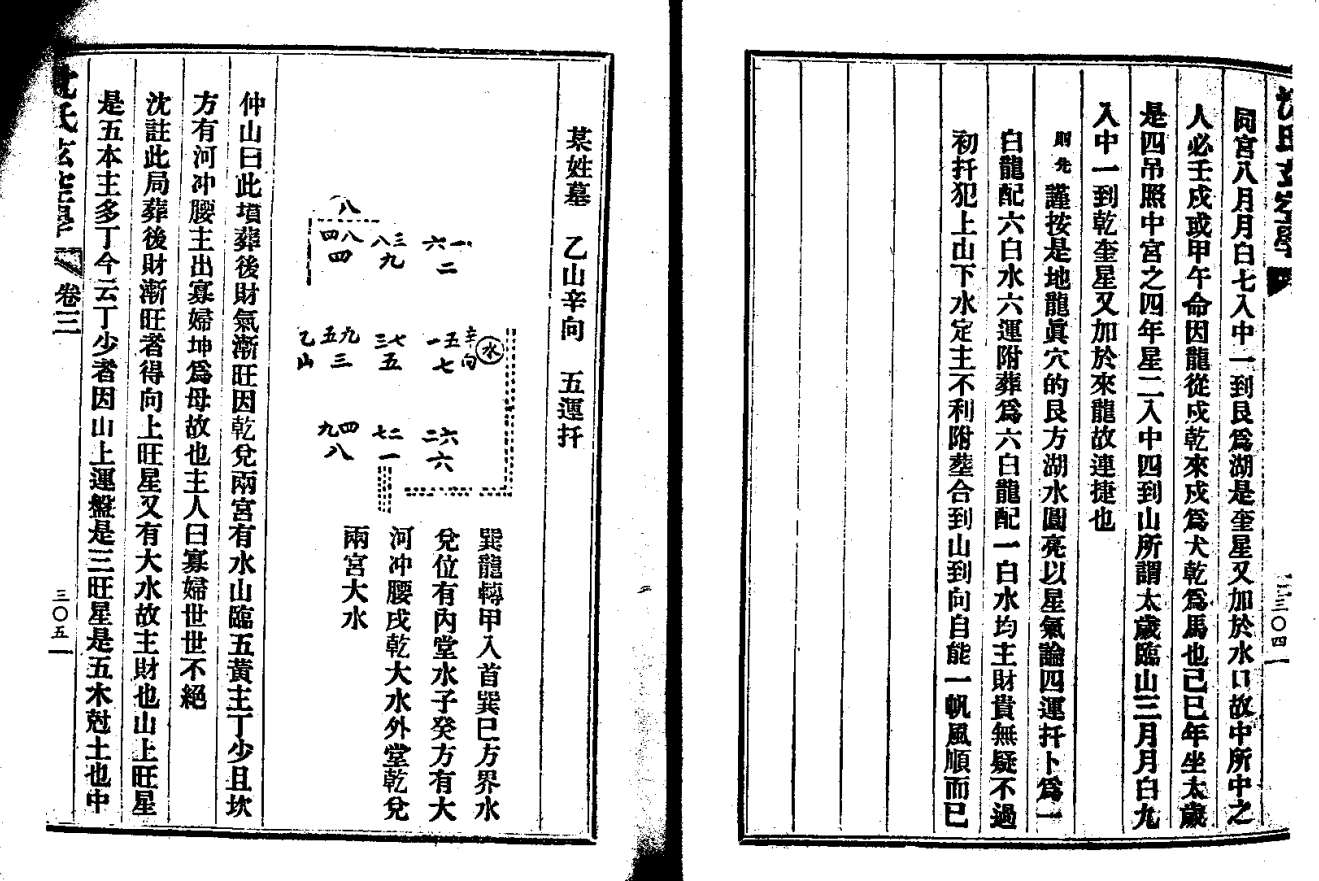 沈氏玄空學
三〇四
同宮八月月白七入中一到艮爲湖是奎星又加於水口故中所中之
人必壬戌或甲午命因龍從戌乾來戌爲犬乾爲馬也己巳年坐太歲
是四吊照中宮之四年星二入中四到山所謂太歲臨山三月月白九
入中一到乾奎星又加於來龍故連捷也
則先 謹按是地龍眞穴的艮方湖水圓亮以星氣論四運扦卜爲一
白龍配六白水六運附葬爲六白龍配一白水均主財貴無疑不過
初扦犯上山下水定主不利附塟合到山到向自能一帆風順而已
某姓墓 乙山辛向 五運扦
八
四八 八三 六一
四 九 二
乙山 五九 三七 一五 辛向 水
三 五 七
九四 七二 二六
八 一 六
巽龍轉甲入首巽巳方界水
兌位有內堂水子癸方有大
河冲腰戌乾大水外堂乾兌
兩宮大水
仲山曰此墳葬後財氣漸旺因乾兌兩宮有水山臨五黃主丁少且坎
方有河冲腰主出寡婦坤爲母故也主人曰寡婦世世不絕
沈註此局葬後財漸旺者得向上旺星又有大水故主財也山上旺星
是五本主多丁今云丁少者因山上運盤是三旺星是五木尅土也中
沈氏玄空學
卷三
三〇五